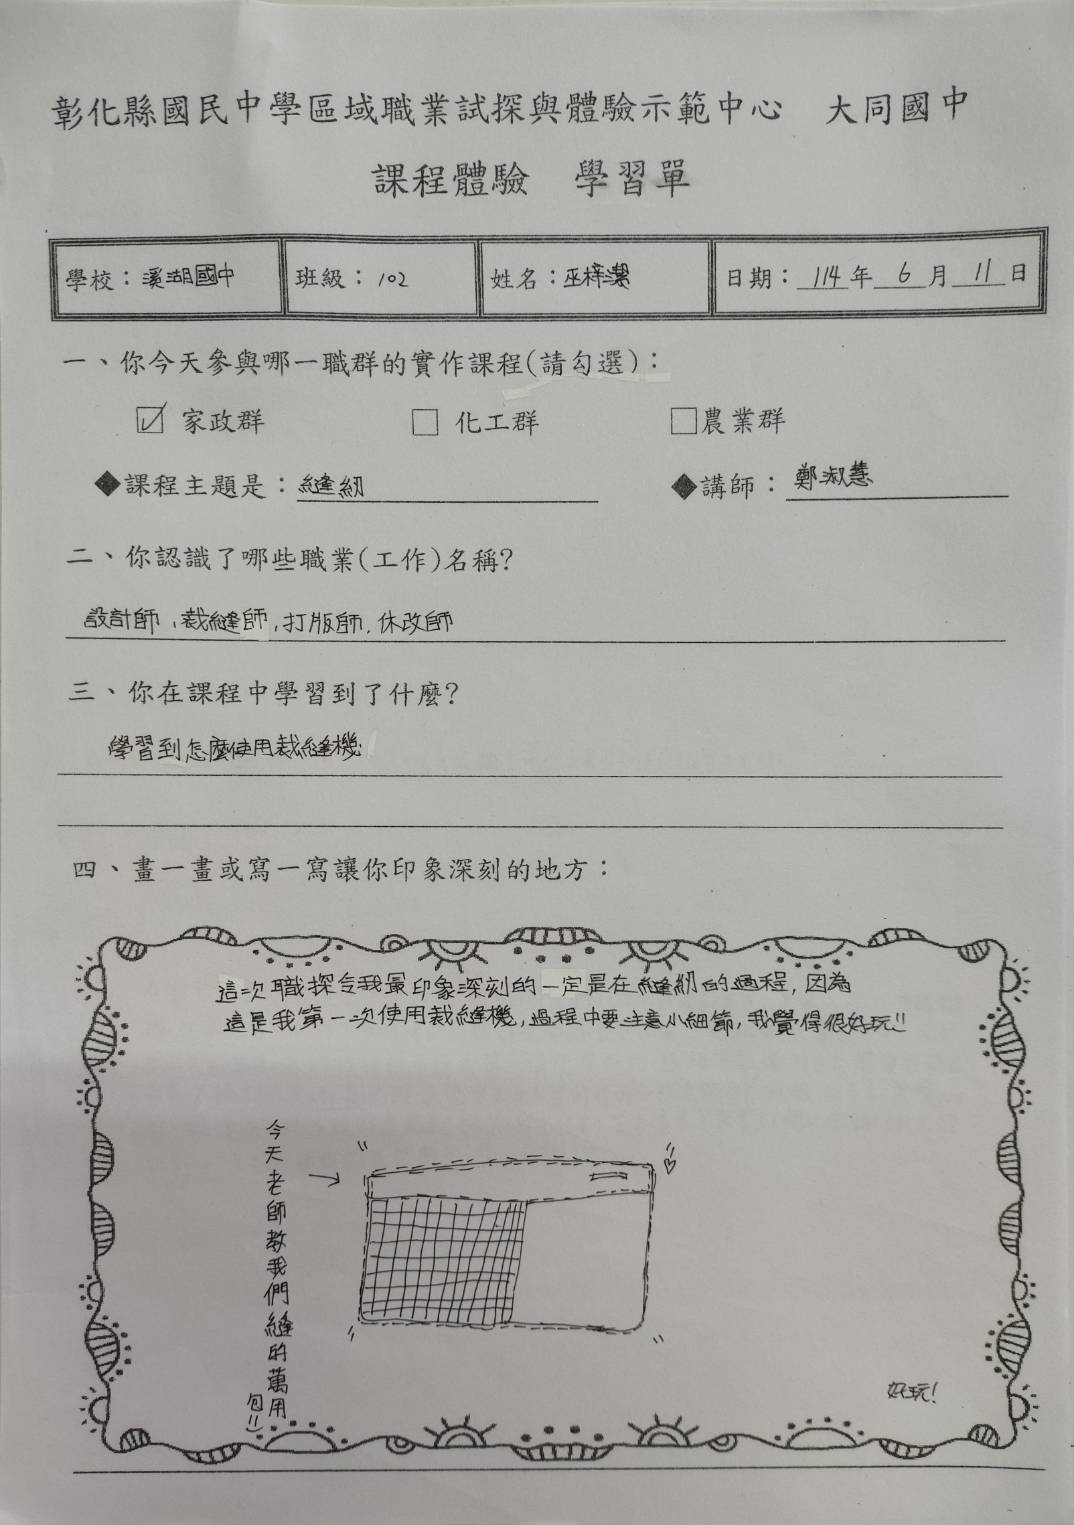 彰化縣國民中學區域職業試探與體驗示範中心　大同國中
課程體驗　學習單
學校：溪湖國中　班級：102　姓名：巫梓潔　日期：114年6月11日
一、你今天參與哪一職群的實作課程(請勾選)：
☑ 家政群　☐ 化工群　☐ 農業群
◆課程主題是：縫紉　◆講師：鄭淑慧
二、你認識了哪些職業(工作)名稱?
設計師,裁縫師,打版師,休改師
三、你在課程中學習到了什麼?
學習到怎麼使用裁縫機
四、畫一畫或寫一寫讓你印象深刻的地方：
這次職探令我最印象深刻的一定是在縫紉的過程,因為
這是我第一次使用裁縫機,過程中要注意小細節,我覺得很好玩!!
今天老師教我們縫的萬用
包!!
好玩!